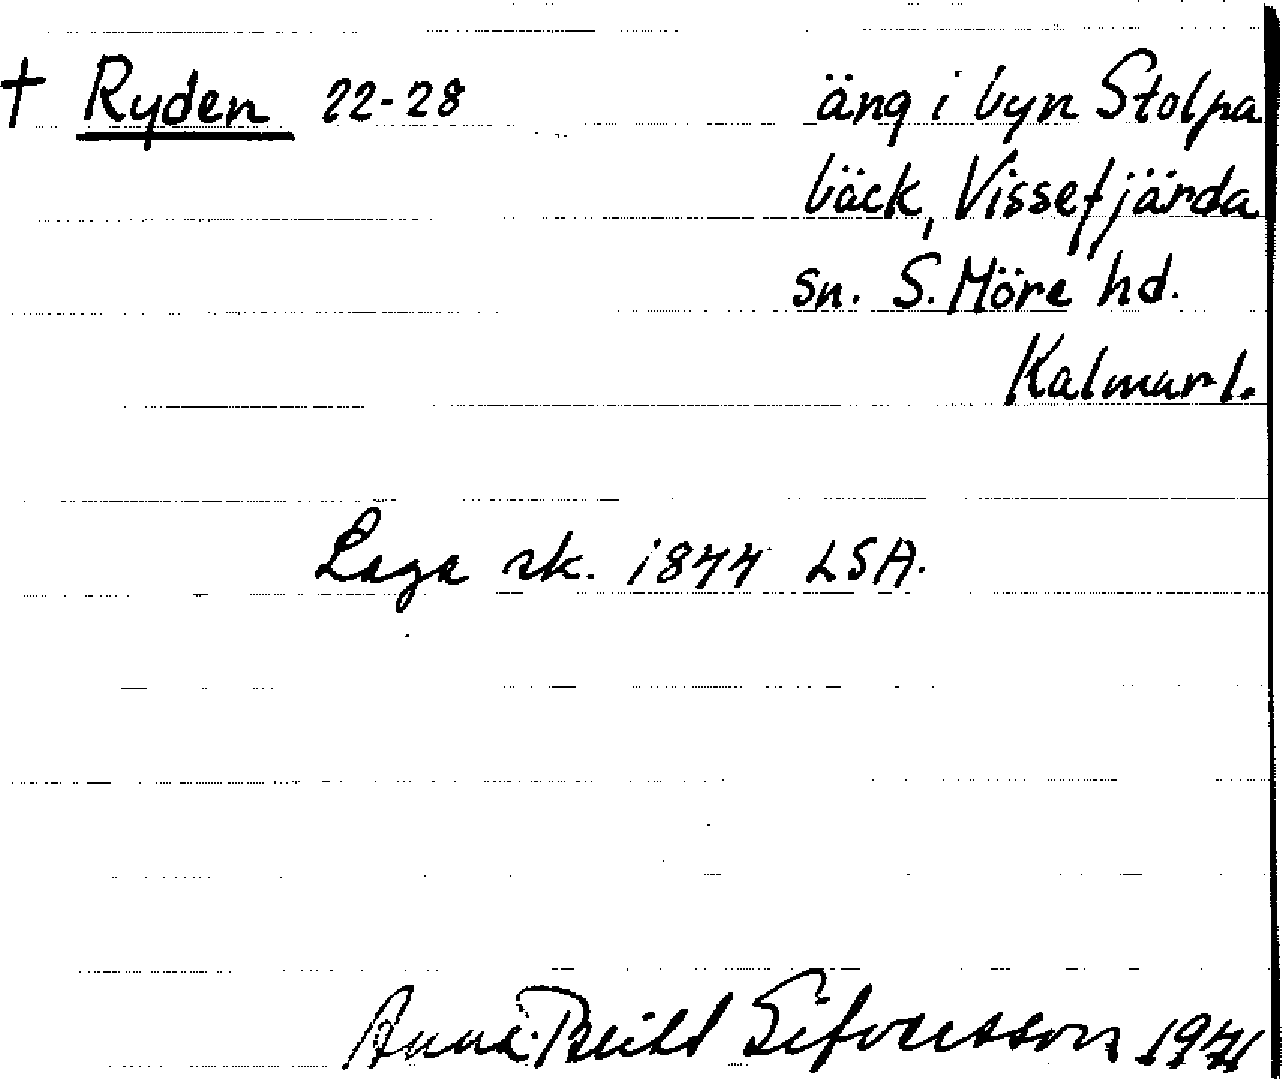 † Ryden 22-28 äng i byn Stolpa
bäck, Vissefjärda
sn. S. Möre hd.
Kalmar l.
Laga sk. 1844 LSA.
Anna-Britt Sifvertsson 1941